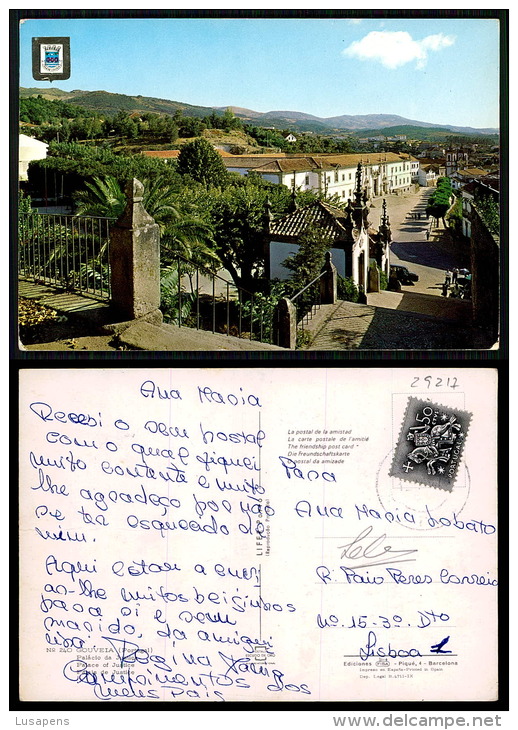 29217
Ana Maria
Recebi o seu postal
com o qual fiquei
muito contente e muito
lhe agradeço por não
se ter esquecido de
mim.
Aqui estou a enviar-
lhe muitos beijinhos
para si e seu
marido, da amiguinha
Regina
Cumprimentos dos
meus Pais
La postal de la amistad
La carte postale de l'amitié
The friendship post card
Die Freundschaftskarte
O postal da amizade
Para
Ana Maria Lobato
R. Paio Peres Correia
nº. 15-3º. Dto
Lisboa 1
1$50
Nº 240 GOUVEIA (Portugal)
Palácio da
Palace of Justice
de Justice
Ediciones FISA - Piqué, 4 - Barcelona
Impreso en España-Printed in Spain
Dep. Legal
Lusapens
www.delcampe.net